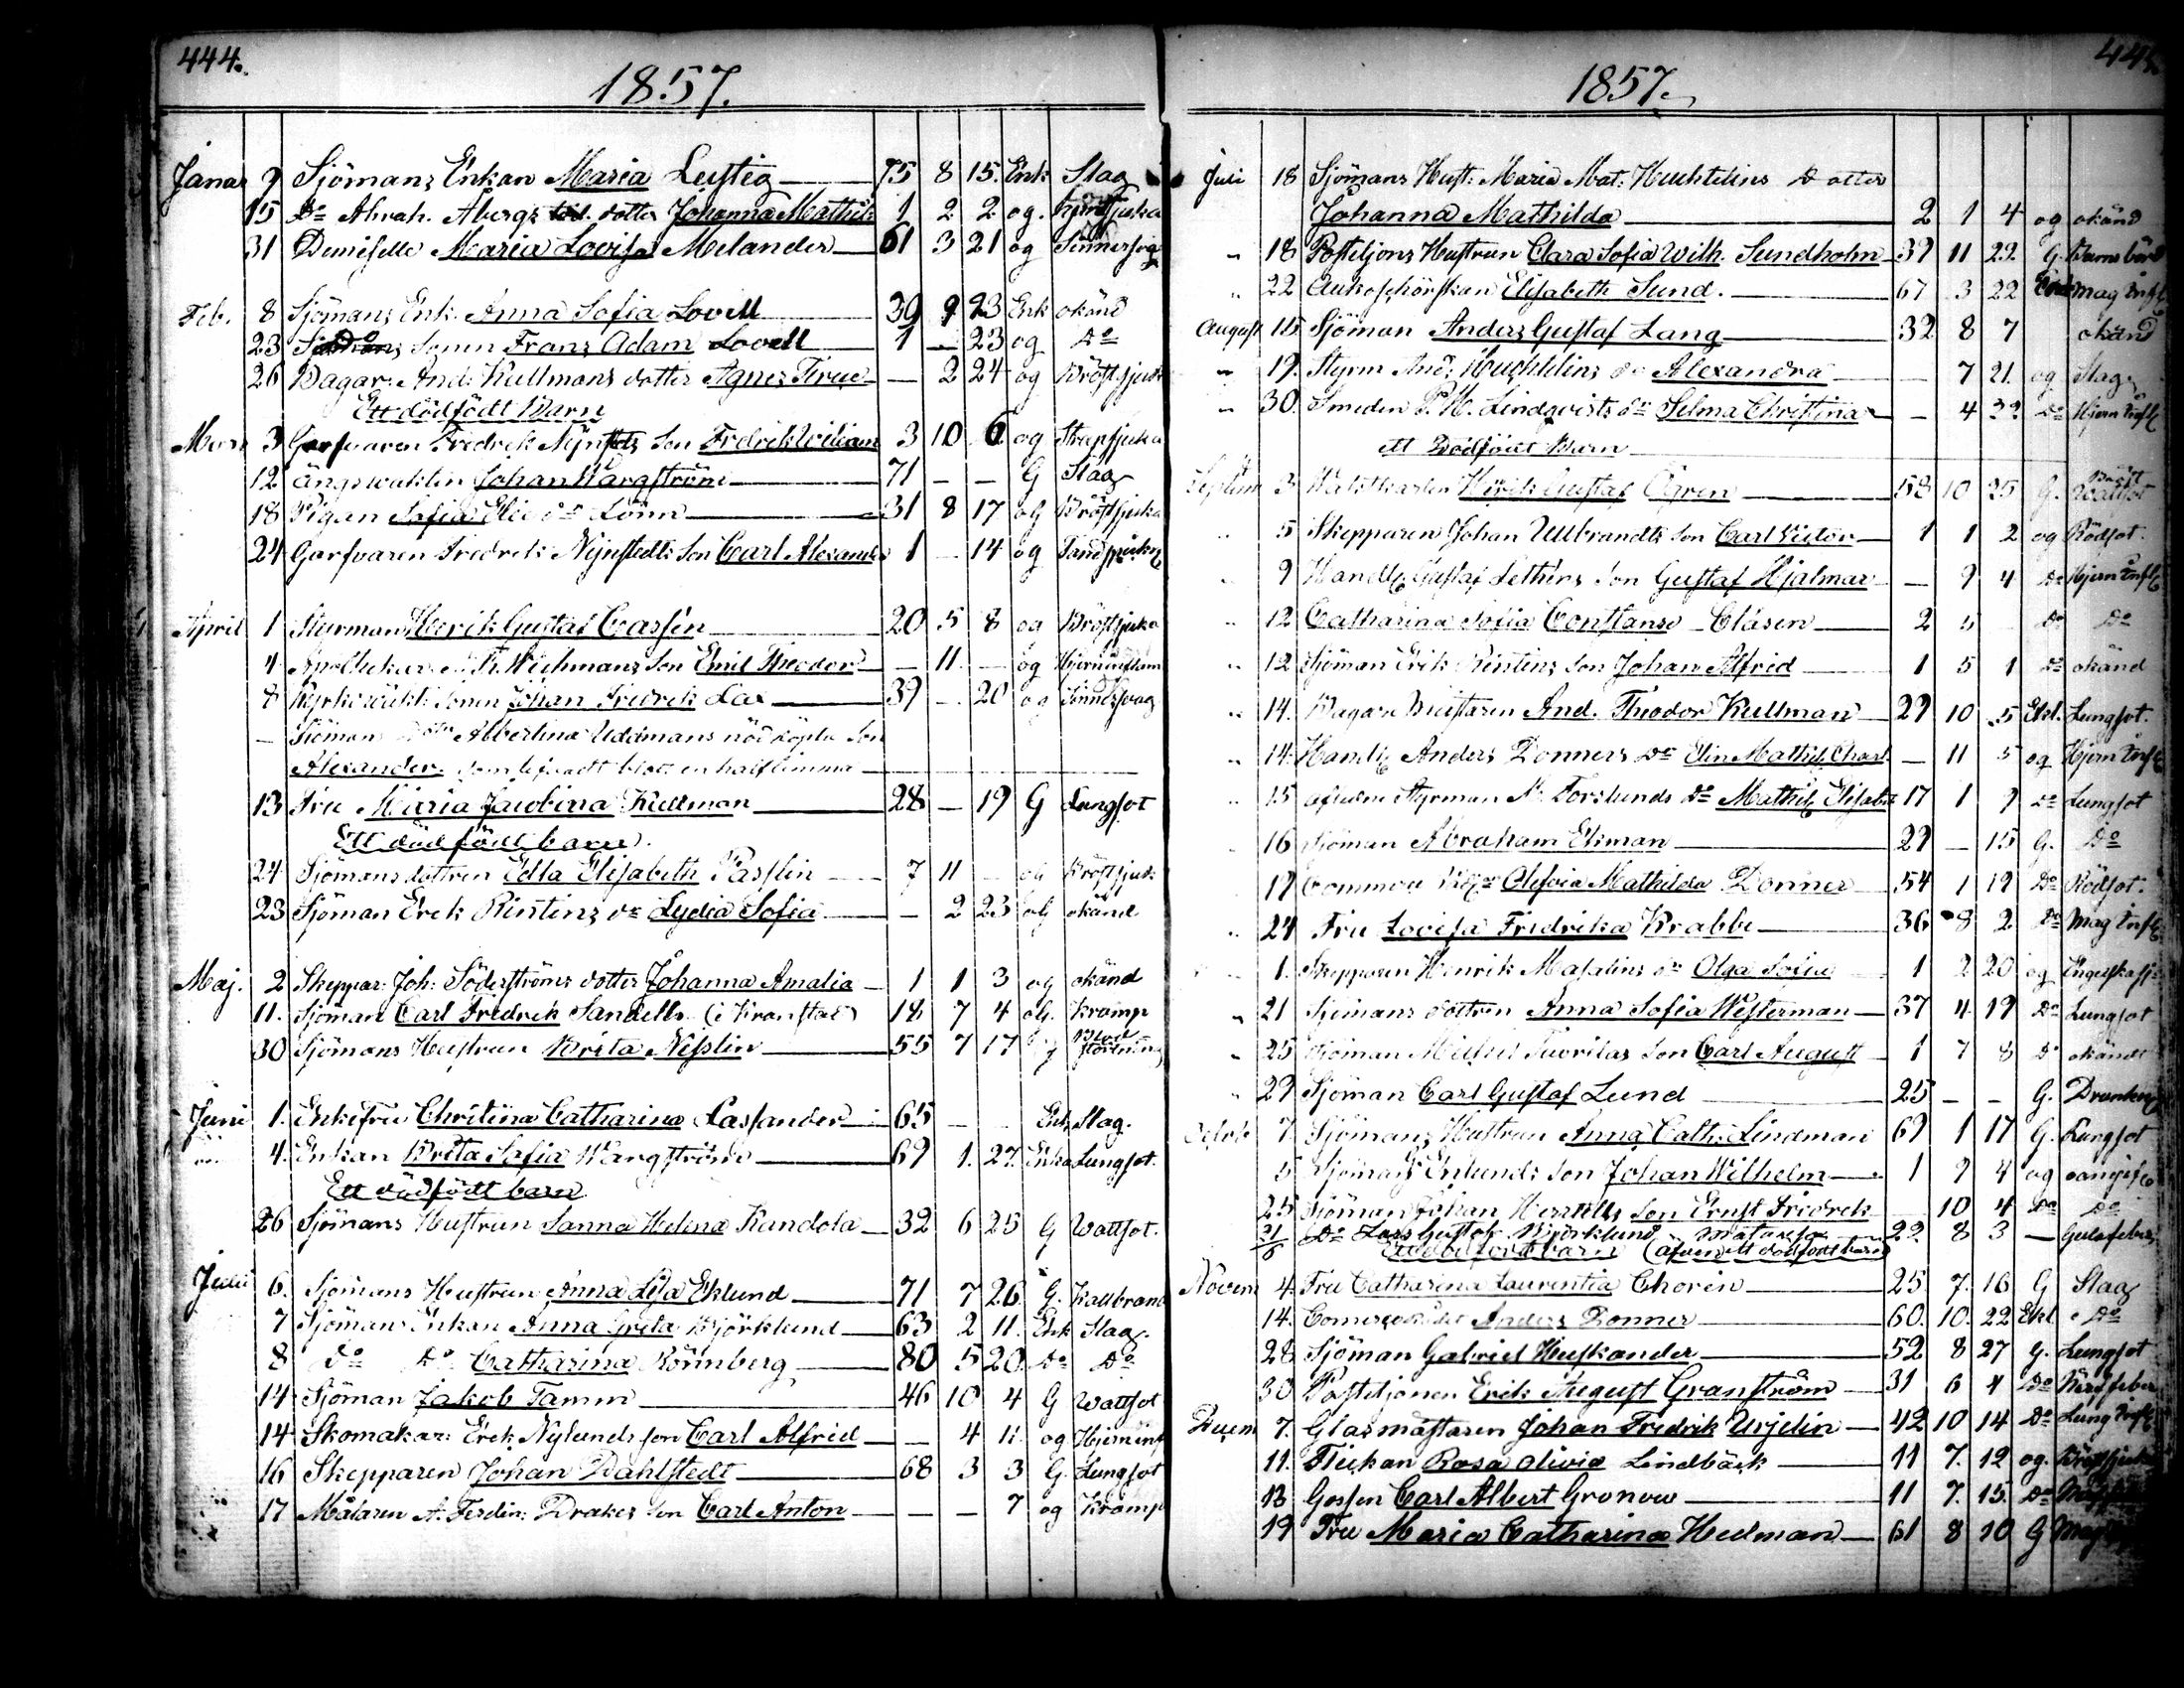 444.
1857.
Januar 9 Sjömans Enkan Maria Lustig 75 8 15. Enk Slag
15 Do Abrah. Åbergs dotter Johanna Mathild 1 2 2 og.
31 Demiselle Maria Lovisa Melander 61 3 21 og Sinnesvag
Feb. 8 Sjömans Enk. Anna Sofia Lovell 39 9 23 Enk okänd
23 Sonen Frans Adam Lovell 1 — 23 og Do
26 Bagar. And: Kullmans dotter Agnes Tirue — 2 24 og Bröstsjuk
Ett dödfödt Barn
Mars 3 Garfvaren Fredrek Nynstedts Son Fredrik Wiliam 3 10 6 og Strupsjuka
12 ängswakten Johan Wargström 71 — — G Slag
18 Pigan Sofia Elie dr Lönn 31 8 17 og Bröstsjuka
24 Garfvaren Fredrek Nynstedts Son Carl Alexander 1 — 14 og Tandsprickn
April 1 Sturman Henrik Gustaf Cassén 20 5 8 og Bröstsjuka
4 Apothekar Wichmans Son Emil Theodor — 11 — og Hjerninflam
8 Kyrkowakt: Sonen Johan Fredrek Lax 39 — 20 og Sinnesvag
— Sjöman Albertina Uddmans nöddöpta Son
Alexander. som lefvadt blot en half timma
13 Fru Maria Jacobina Kullman 28 — 19 G Lungsot
Ett död född barn.
24 Sjömans dottren Edla Elisabeth Passlin 7 11 — og Bröstsjuk
23 Sjöman Erik Rintins dr Lydia Sofia — 2 23 og okänd
Maj. 2 Skeppar: Joh: Söderströms dotter Johanna Amalia 1 1 3 og okänd
11. Sjöman Carl Fredrek Sandells (i Kronstad) 18 7 4 og. Kramp
30 Sjömans Hustrun Brita Nesslin 55 7 17 Blodstörtning
Juni 1. Enkefru Christina Catharina Cassander 65 — — Enk Slag.
4. Enkan Brita Sofia Wargström 69 1. 27. Enka Lungsot.
Ett dödfödt barn
26 Sjömans Hustrun Sanna Helena Kandola 32 6 25 G Wattsot.
Juli 6. Sjömans Hustrun Anna Lisa Eklund 71 7 26 G. Kallbrand
7 Sjömans Enkan Anna Greta Björklund 63 2 11. Enk Slag.
8 do Do Catharina Rönnberg 80 5 20 Do Do
14 Sjöman Jakob Tamm 46 10 4 G Wattsot
14 Skomakar: Erek Nylunds son Carl Alfrid — 4 11 og Hjerninf
16 Skepparen Johan Dahlstedt 68 3 3 G. Lungsot
17 Målaren A. Ferdin: Drakes Son Carl Anton — — 7 og Kramp
1857.
Juli 18 Sjömans Hust: Maria Mat: Huchtelins Dotter
Johanna Mathilda 2 1 4 og okänd
18 Postiljons Hustrun Clara Sofia Wilh. Sundholm 39 11 22 G. Barnsbörd
22 Elisabeth Sund. 67 3 22 Mag Infl
August 15 Sjöman Anders Gustaf Lang 32 8 7 okänd
19. Styrm And. Huchtelins dr Alexandra — 7 21. og Slag
30. Smeden Lindqvists dr Selma Christina — 4 Do Hjern Infl
ett Dödfödt Barn
Septem 3 Gustaf Ögren 58 10 25 G. Bröst Wattsot
5 Skepparen Johan Ullbrandts Son Carl Victor 1 1 2 og Rödsot.
9 Handl. Gustaf Lethéns Son Gustaf Hjalmar — 9 4 Do Hjern Infl
12 Catharina Sofia Constanse Clásen 2 5 Do Do
12 Sjöman Erik Rintins Son Johan Alfrid 1 5 1 Do okänd
14. Bagare Mästaren And. Theodor Kullman 29 10 5 Ekl. Lungsot.
14. Handl. Anders Donners Dr Elin Mathild Charl — 11 5 og Hjern Infl
15 Styrman Forslunds Dr Mathild Elisabet 17 1 9 Do Lungsot
16 Sjöman Abraham Ekman 29 — 15 G. Do
19 Olefvia Mathilda Donner 54 1 19 Do Rödsot.
24 Fru Lovisa Fredrika Krabbe 36 8 2 Do Mag Infl
1. Skepparen Henrik Masalins dr Olga Sofia 1 2 20 og Engelskasj
21 Sjömans dottren Anna Sofia Westerman 37 4 19 Do Lungsot
25 Sjöman Son Carl August 1 7 8 Do okändt
29 Sjöman Carl Gustaf Lund 25 — — G. Drunkn
Octob 7. Sjömans Hustrun Anna Cath: Lindman 69 1 17 G. Lungsot
5 Sjömans Enlunds Son Johan Wilhelm 1 9 4 og
25 Sjöman Johan Son Ernst Fredrek 10 4 Do Do
31/6 Do Lars Gustaf Björklund 22 8 3 — Gulafeber
(äfven ett dödfödt barn)
Novem 4. Fru Catharina Laurentia Chorin 25 7. 16 G Slag
14. Comerserådet Anders Donner 60. 10. 22 Ekl Do
28 Sjöman Gabriel Huskander 52 8 27 G. Lungsot
30 Postiljonen Erik August Granström 31 6 4 Do Nerffeber
Decem 7. Glasmästaren Johan Fredrik Urjelin 42 10 14 Do Lung Infl
11. Flickan Rosa Olivia Lindbäck 11 7. 12 og. Bröstsjuka
13 Gossen Carl Albert Gronow 11 7. 15. Do
19 Fru Maria Catharina Hedman 61 8 10 G